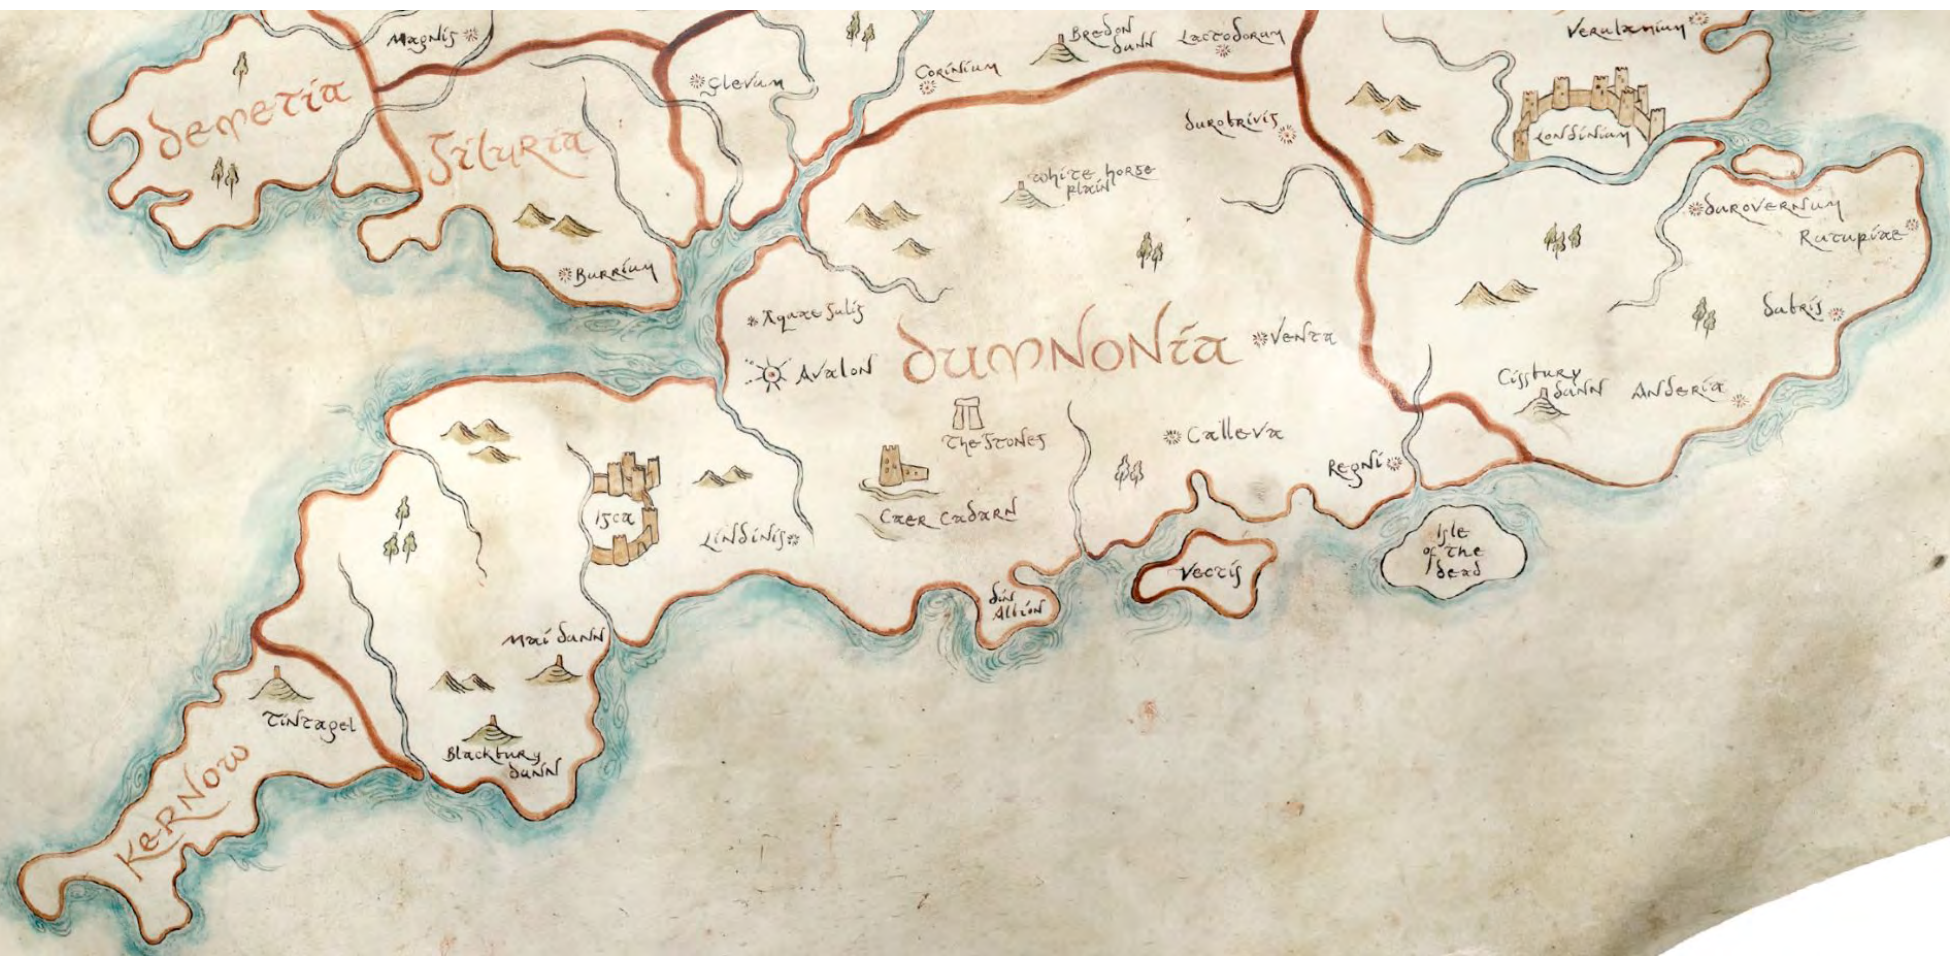 Magnis
Bredon
Dunn
Lactodorum
Verulamium
Demetia
Siluria
Glevum
Corinium
Durobrivis
Londinium
White horse
plain
Durovernum
Rutupiae
Burrium
Aquae Sulis
Avalon
Dumnonia
Venta
Dubris
Cissbury
Dunn
Anderia
The Stones
Calleva
Regni
Isca
Lindinis
Caer Cadarn
Isle
of the
dead
Vectis
Din
Albion
Mai Dunn
Tintagel
Blackbury
Dunn
Kernow